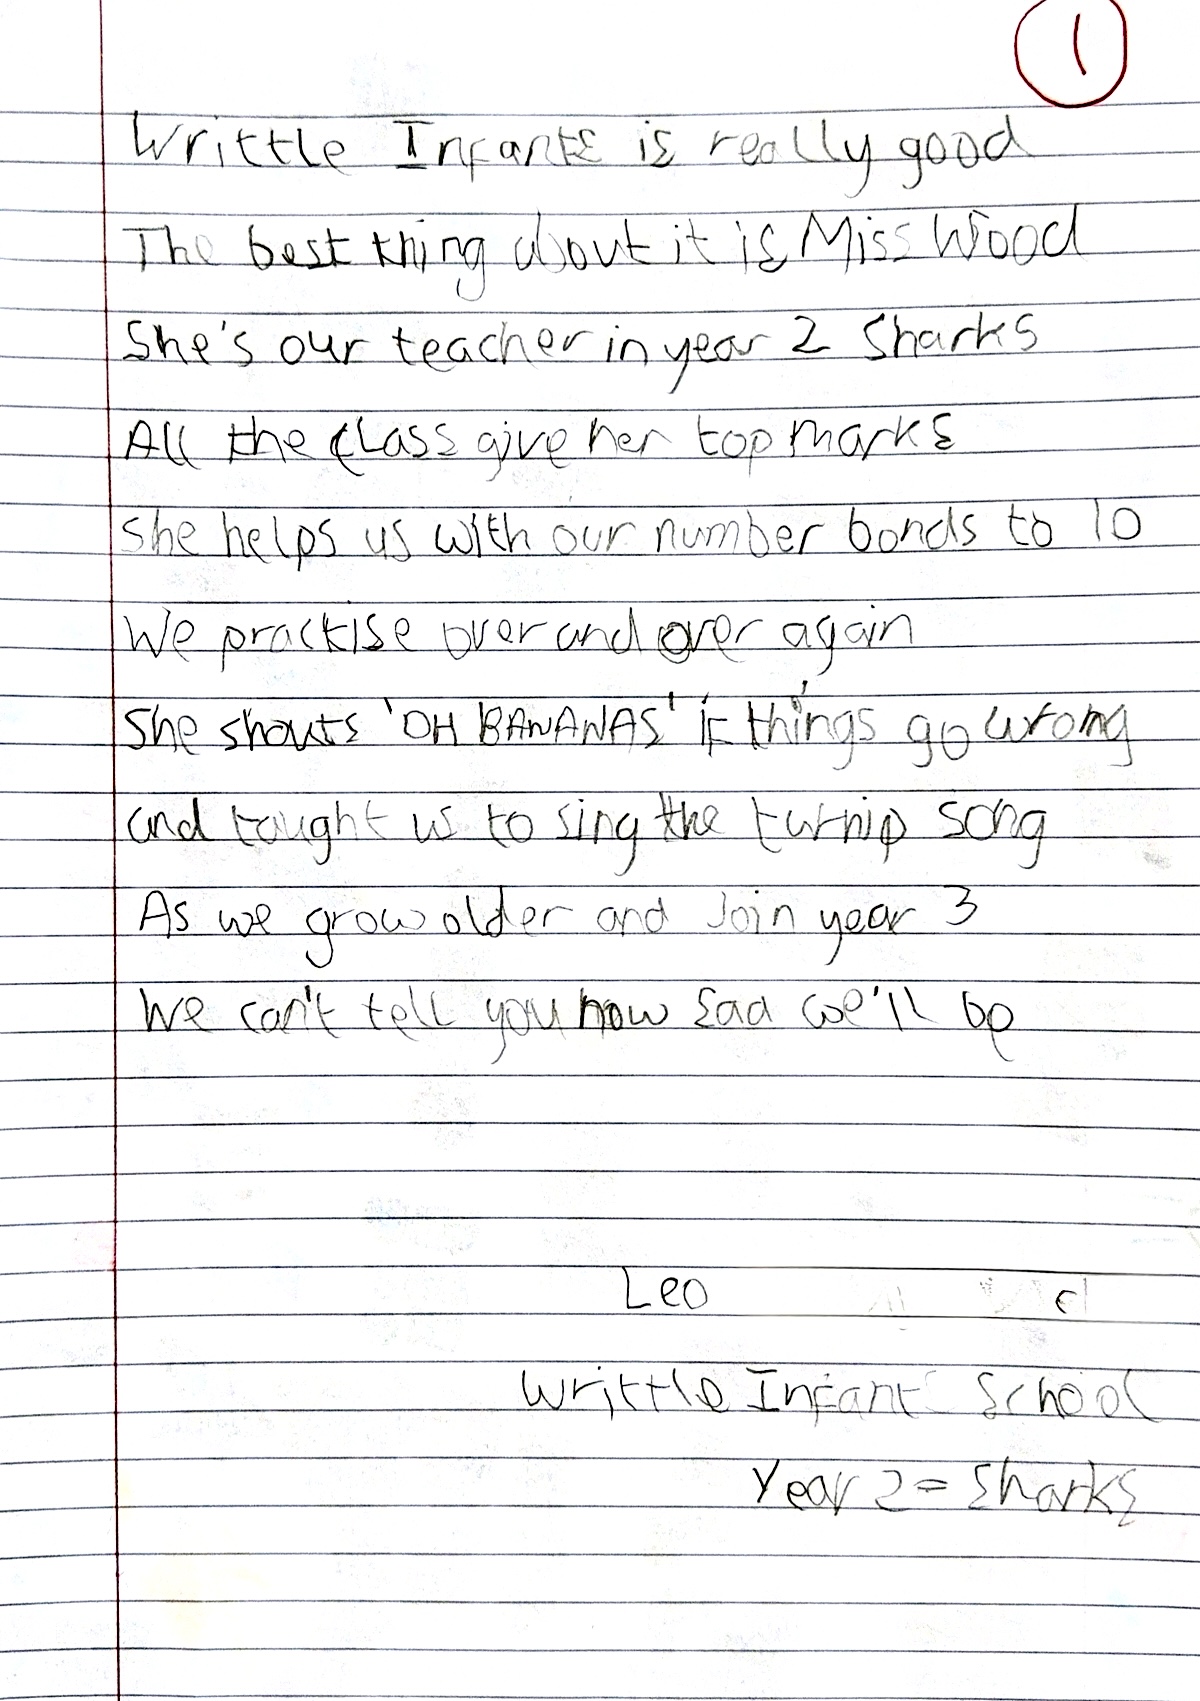 1
Writtle Infants is really good
The best thing about it is Miss Wood
She's our teacher in year 2 Sharks
All the class give her top marks
She helps us with our number bonds to 10
We practise over and over again
She shouts 'OH BANANAS' if things go wrong
and taught us to sing the turnip song
As we grow older and Join year 3
We can't tell you how sad we'll be
Leo
Writtle Infant School
Year 2 = Sharks